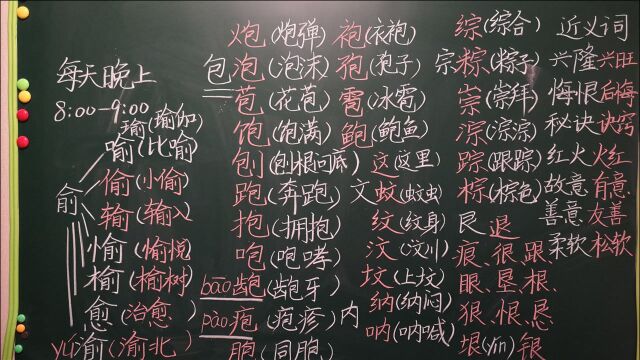 每天晚上
8:00-9:00
俞
瑜(瑜伽)
喻(比喻)
偷(小偷)
输(输入)
愉(愉悦)
榆(榆树)
愈(治愈)
yú渝(渝北)
包
炮(炮弹)
泡(泡沫)
苞(花苞)
饱(饱满)
刨(刨根问底)
跑(奔跑)
抱(拥抱)
咆(咆哮)
bāo龅(龅牙)
pào疱(疱疹)
胞(同胞)
袍(衣袍)
孢(孢子)
雹(冰雹)
鲍(鲍鱼)
文
这(这里)
蚊(蚊虫)
纹(纹身)
汶(汶川)
坟(上坟)
内
纳(纳闷)
呐(呐喊)
宗
综(综合)
粽(粽子)
崇(崇拜)
淙(淙淙)
踪(跟踪)
棕(棕色)
艮 退
痕、很、跟
眼、垦、根、
狠、恨、恳
垠(yín) 银
近义词
兴隆 兴旺
悔恨 后悔
秘诀 诀窍
红火 火红
故意 有意
善意 友善
柔软 松软